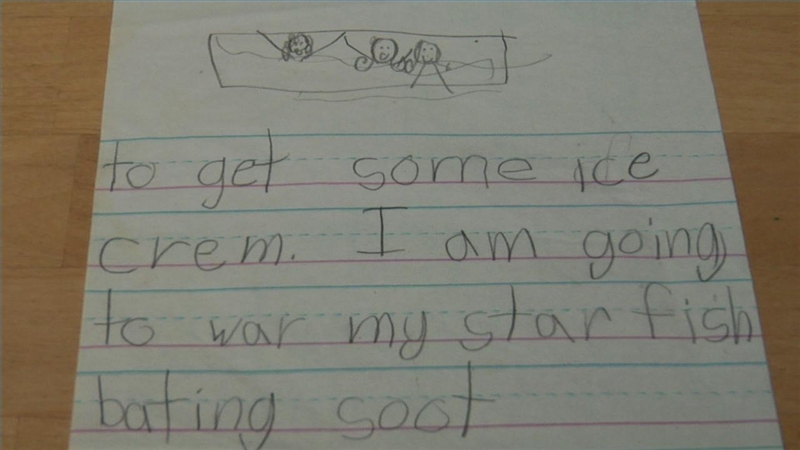 to get some ice
crem. I am going
to war my star fish
bating soot